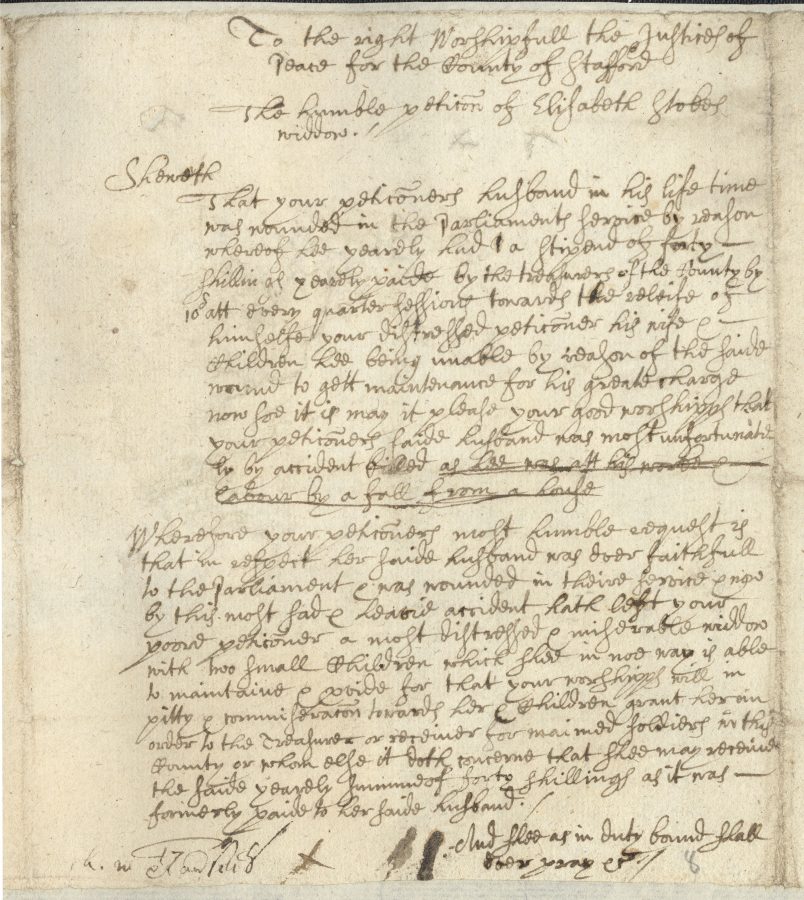 To the right Worshipfull the Justices of
Peace for the County of Stafford
The humble peticon of Elisabeth Stobes
widdow./
Sheweth
That your peticoners husband in his life time
was wounded in the Parliaments service by reason
whereof hee yearely had a stipend of forty
shillings yearely paide by the treasurers of the County by
10s att every quarter sessions towards the releife of
himselfe your distressed peticoner his wife &
Children hee being unable by reason of the saide
wound to gett maintenance for his greate charge
now soe it is may it please your good worshipps that
your peticoners saide husband was most unfortunate
ly by accident killed as hee was att his worke &
labour by a fall from a house
Wherefore your peticoners most humble request is
that in respect her saide husband was ever faithfull
to the Parliament & was wounded in theire service &
by this most sad & accident hath left your
poore peticoner a most distressed & miserable widdow
with two small Children which shee in noe way is able
to maintaine & pvide for that your worshipps will in
pitty & commiseracon towards her & Children grant her an
order to the Treasurer or receiver for maimed soldiers in this
County or whom else it doth concerne that shee may receive
the saide yearely summe of forty shillings as it was
formerly paide to her saide husband./
And shee as in duty bound shall
ever pray &c./
8